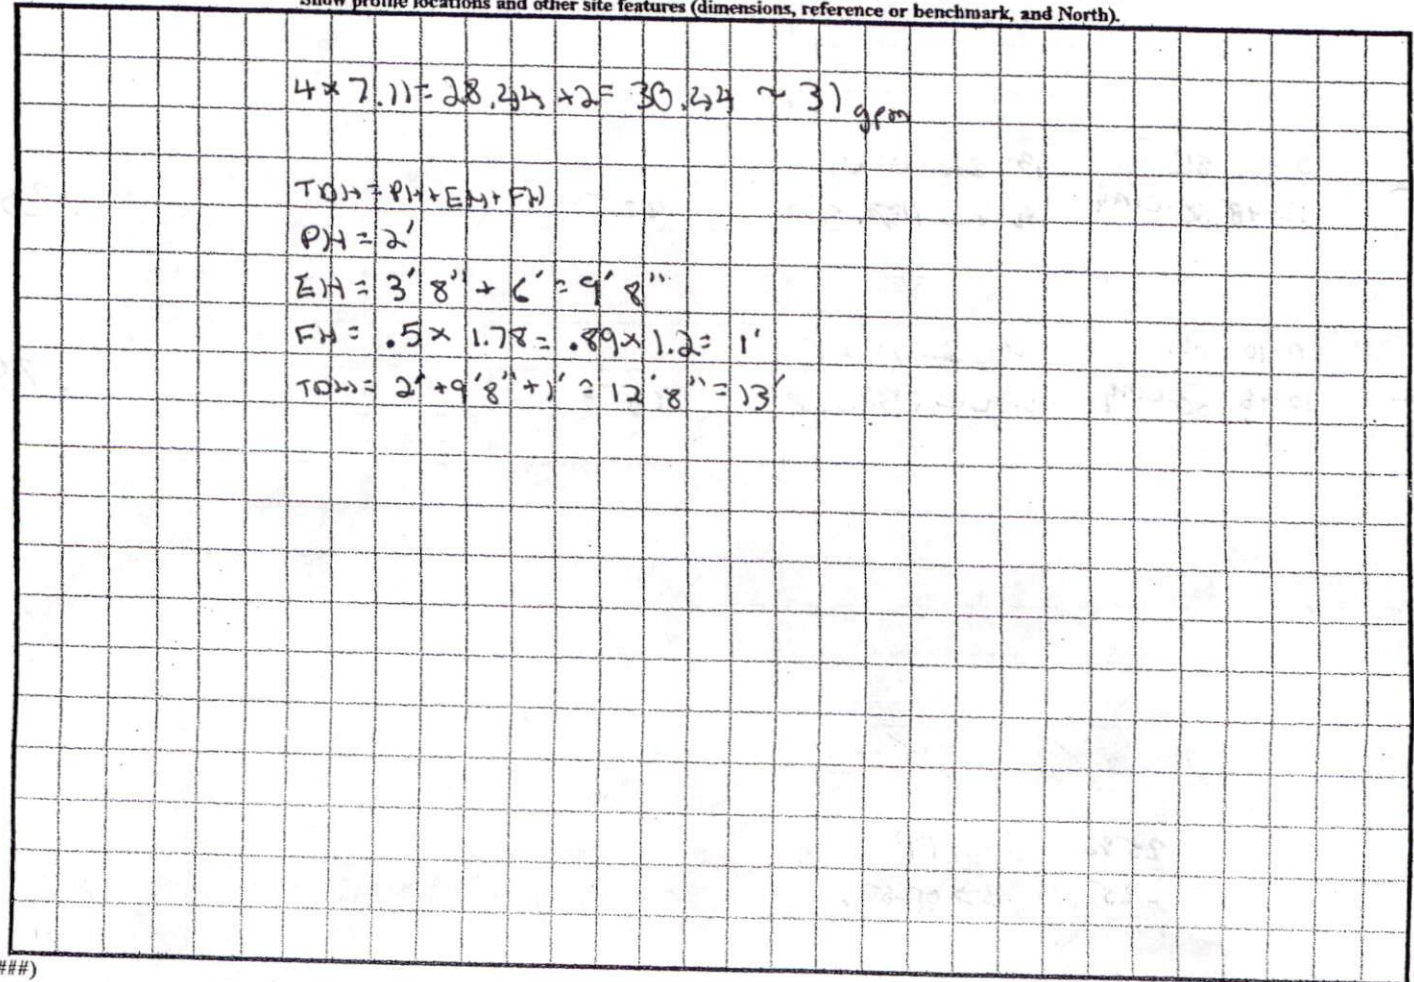 Show profile locations and other site features (dimensions, reference or benchmark, and North).
4 x 7.11 = 28.44 +2 = 30.44 ~ 31 gpm
TDH = PH + EH + FH
PH = 2'
EH = 3' 8" + 6' = 9' 8"
FH = .5 x 1.78 = .89 x 1.2 = 1'
TDH = 2' + 9' 8" + 1' = 12' 8" = 13'
###)